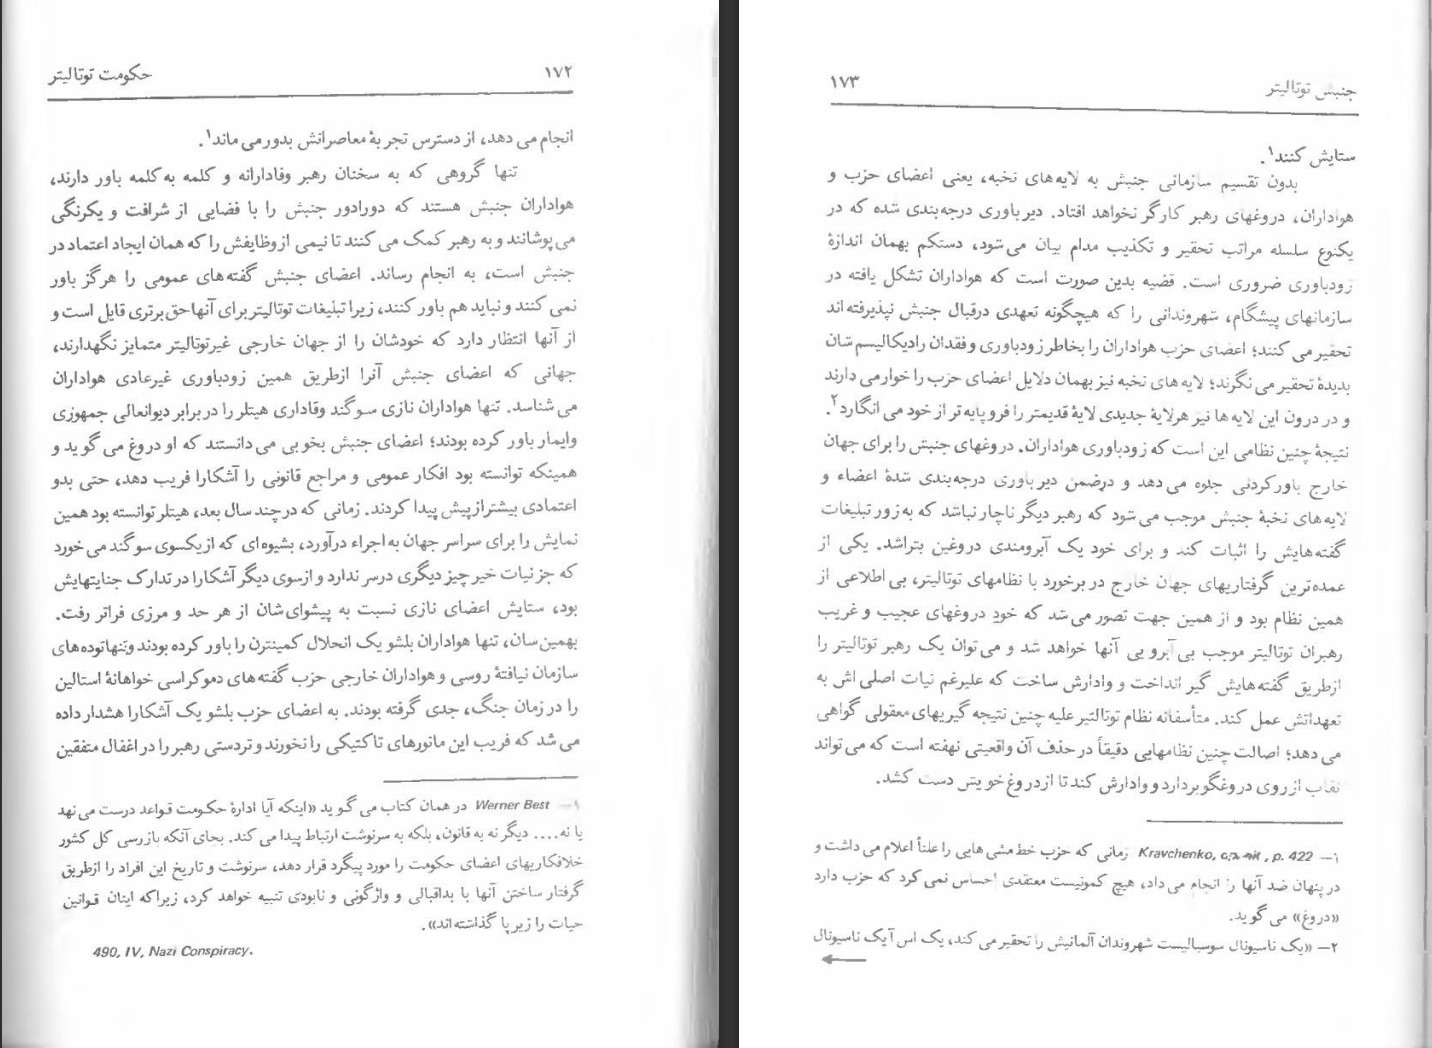 ۱۷۲
حکومت توتالیتر
انجام می دهد، از دسترس تجربهٔ معاصرانش بدور می ماند۱.
تنها گروهی که به سخنان رهبر وفادارانه و کلمه به کلمه باور دارند،
هواداران جنبش هستند که دورادور جنبش را با فضایی از شرافت و یکرنگی
می پوشانند و به رهبر کمک می کنند تا نیمی از وظایفش را که همان ایجاد اعتماد در
جنبش است، به انجام رساند. اعضای جنبش گفته های عمومی را هرگز باور
نمی کنند و نباید هم باور کنند، زیرا تبلیغات توتالیتر برای آنها حق برتری قایل است و
از آنها انتظار دارد که خودشان را از جهان خارجی غیرتوتالیتر متمایز نگهدارند،
جهانی که اعضای جنبش آنرا ازطریق همین زودباوری غیرعادی هواداران
می شناسد. تنها هواداران نازی سوگند وفاداری هیتلر را در برابر دیوانعالی جمهوری
وایمار باور کرده بودند؛ اعضای جنبش بخوبی می دانستند که او دروغ می گوید و
همینکه توانسته بود افکار عمومی و مراجع قانونی را آشکارا فریب دهد، حتی بدو
اعتمادی بیشتر از پیش پیدا کردند. زمانی که در چند سال بعد، هیتلر توانسته بود همین
نمایش را برای سراسر جهان به اجراء درآورد، بشیوه ای که از یکسوی سوگند می خورد
که جز نیات خیر چیز دیگری در سر ندارد و ازسوی دیگر آشکارا در تدارک جنایتهایش
بود، ستایش اعضای نازی نسبت به پیشوای شان از هر حد و مرزی فراتر رفت.
بهمین سان، تنها هواداران بلشویک انحلال کمینترن را باور کرده بودند و تنها توده های
سازمان نیافتهٔ روسی و هواداران خارجی حزب گفته های دموکراسی خواهانهٔ استالین
را در زمان جنگ، جدی گرفته بودند. به اعضای حزب بلشویک آشکارا هشدار داده
می شد که فریب این مانورهای تاکتیکی را نخورند و تردستی رهبر را در اغفال متفقین
۱— Werner Best در همان کتاب می گوید «اینکه آیا ادارهٔ حکومت قواعد درست می نهد
یا نه.... دیگر نه به قانون، بلکه به سرنوشت ارتباط پیدا می کند. بجای آنکه بازرسی کل کشور
خلافکاریهای اعضای حکومت را مورد پیگرد قرار دهد، سرنوشت و تاریخ این افراد را ازطریق
گرفتار ساختن آنها با بداقبالی و واژگونی و نابودی تنبیه خواهد کرد، زیرا که اینان قوانین
حیات را زیر پا گذاشته اند».
490, IV, Nazi Conspiracy.
جنبش توتالیتر
۱۷۳
ستایش کنند۱.
بدون تقسیم سازمانی جنبش به لایه های نخبه، یعنی اعضای حزب و
هواداران، دروغهای رهبر کارگر نخواهد افتاد. دیرباوری درجه بندی شده که در
یکنوع سلسله مراتب تحقیر و تکذیب مدام بیان می شود، دستکم بهمان اندازهٔ
زودباوری ضروری است. قضیه بدین صورت است که هواداران تشکل یافته در
سازمانهای پیشگام، شهروندانی را که هیچگونه تعهدی درقبال جنبش نپذیرفته اند
تحقیر می کنند؛ اعضای حزب هواداران را بخاطر زودباوری و فقدان رادیکالیسم شان
بدیدهٔ تحقیر می نگرند؛ لایه های نخبه نیز بهمان دلایل اعضای حزب را خوار می دارند
و در درون این لایه ها نیز هر لایهٔ جدیدی لایهٔ قدیمتر را فروپایه تر از خود می انگارد۲.
نتیجهٔ چنین نظامی این است که زودباوری هواداران، دروغهای جنبش را برای جهان
خارج باورکردنی جلوه می دهد و درضمن دیرباوری درجه بندی شدهٔ اعضاء و
لایه های نخبهٔ جنبش موجب می شود که رهبر دیگر ناچار نباشد که به زور تبلیغات
گفته هایش را اثبات کند و برای خود یک آبرومندی دروغین بتراشد. یکی از
عمده ترین گرفتاریهای جهان خارج در برخورد با نظامهای توتالیتر، بی اطلاعی از
همین نظام بود و از همین جهت تصور می شد که خود دروغهای عجیب و غریب
رهبران توتالیتر موجب بی آبرویی آنها خواهد شد و می توان یک رهبر توتالیتر را
ازطریق گفته هایش گیر انداخت و وادارش ساخت که علیرغم نیات اصلی اش به
تعهداتش عمل کند. متأسفانه نظام توتالتیر علیه چنین نتیجه گیریهای معقولی گواهی
می دهد؛ اصالت چنین نظامهایی دقیقاً در حذف آن واقعیتی نهفته است که می تواند
نقاب از روی دروغگو بردارد و وادارش کند تا از دروغ خویش دست کشد.
۱— Kravchenko, op. cit., p. 422 زمانی که حزب خط مشی هایی را علناً اعلام می داشت و
در پنهان ضد آنها را انجام می داد، هیچ کمونیست معتقدی احساس نمی کرد که حزب دارد
«دروغ» می گوید.
۲— «یک ناسیونال سوسیالیست شهروندان آلمانیش را تحقیر می کند، یک اس آ یک ناسیونال